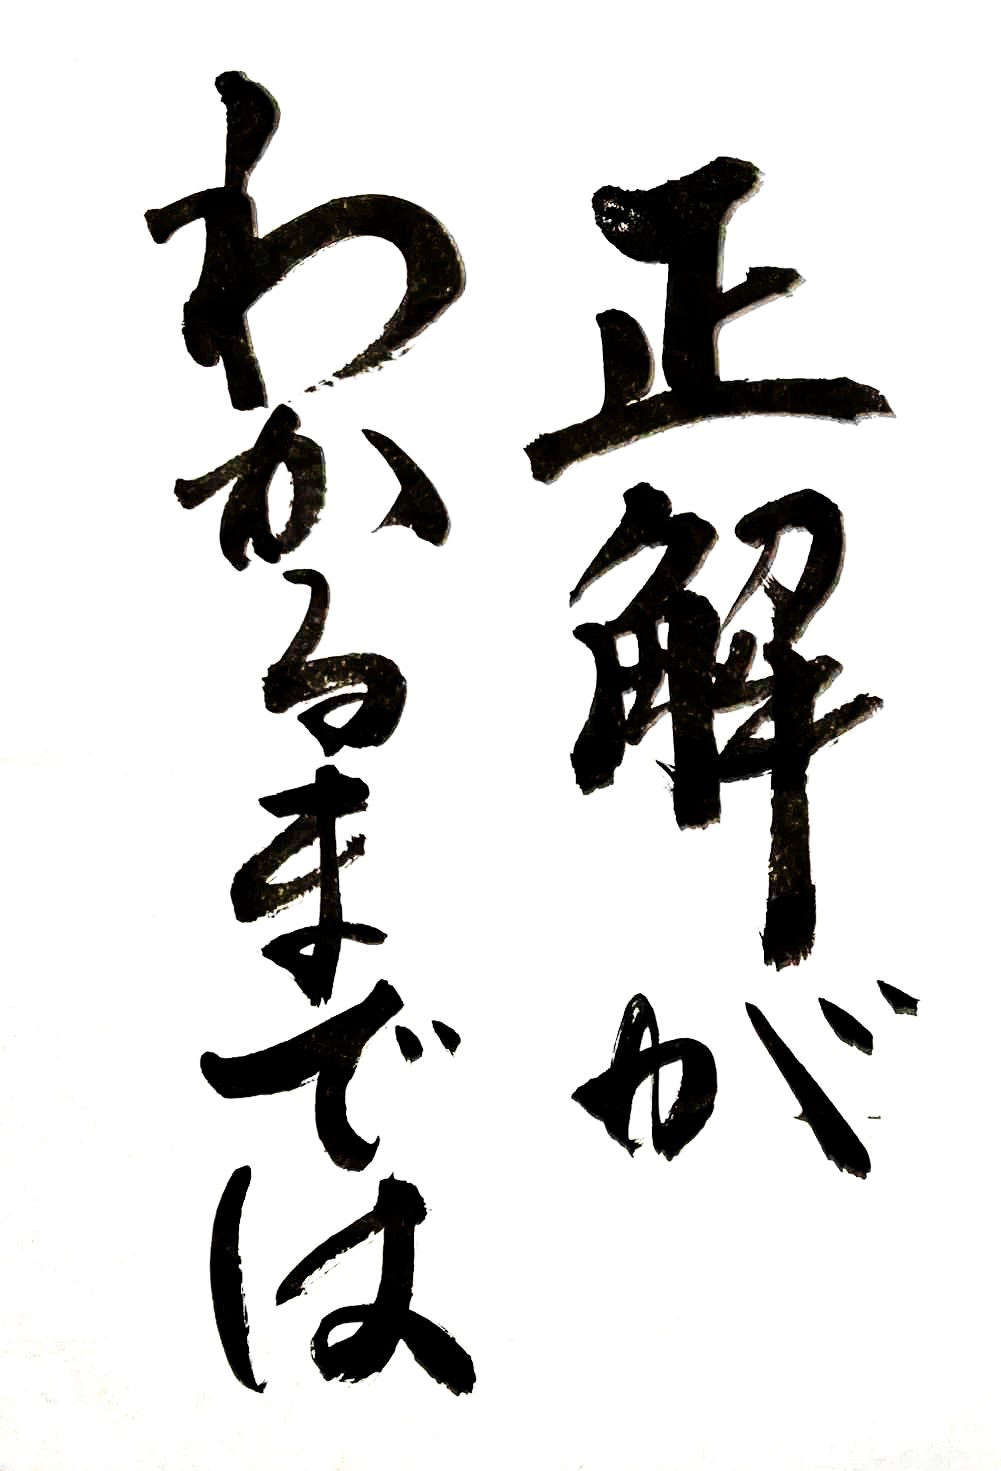 正解が
わかるまでは